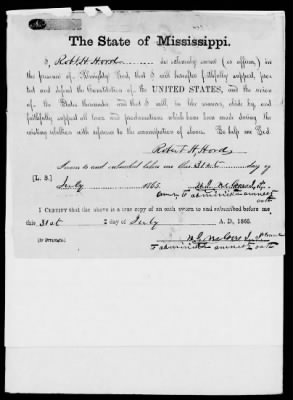 The State of Mississippi.
I, Robt H. Hord do solemnly swear (or affirm,) in
the presence of Almighty God, that I will hereafter faithfully support, protect
and defend the Constitution of the UNITED STATES, and the union
of the States thereunder and that I will, in like manner, abide by and
faithfully support all laws and proclamations which have been made during the
existing rebellion with reference to the emancipation of slaves. So help me God.
Robert H. Hord
Sworn to and subscribed before me this 31st day of
[L. S.] July 1865.
to administer amnesty
oath
I CERTIFY that the above is a true copy of an oath sworn to and subscribed before me,
this 31st day of July A. D., 1865.
to administer amnesty oath